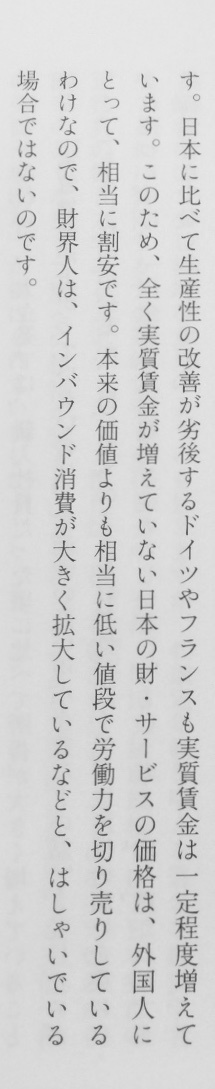 す。日本に比べて生産性の改善が劣後するドイツやフランスも実質賃金は一定程度増えて
います。このため、全く実質賃金が増えていない日本の財・サービスの価格は、外国人に
とって、相当に割安です。本来の価値よりも相当に低い値段で労働力を切り売りしている
わけなので、財界人は、インバウンド消費が大きく拡大しているなどと、はしゃいでいる
場合ではないのです。